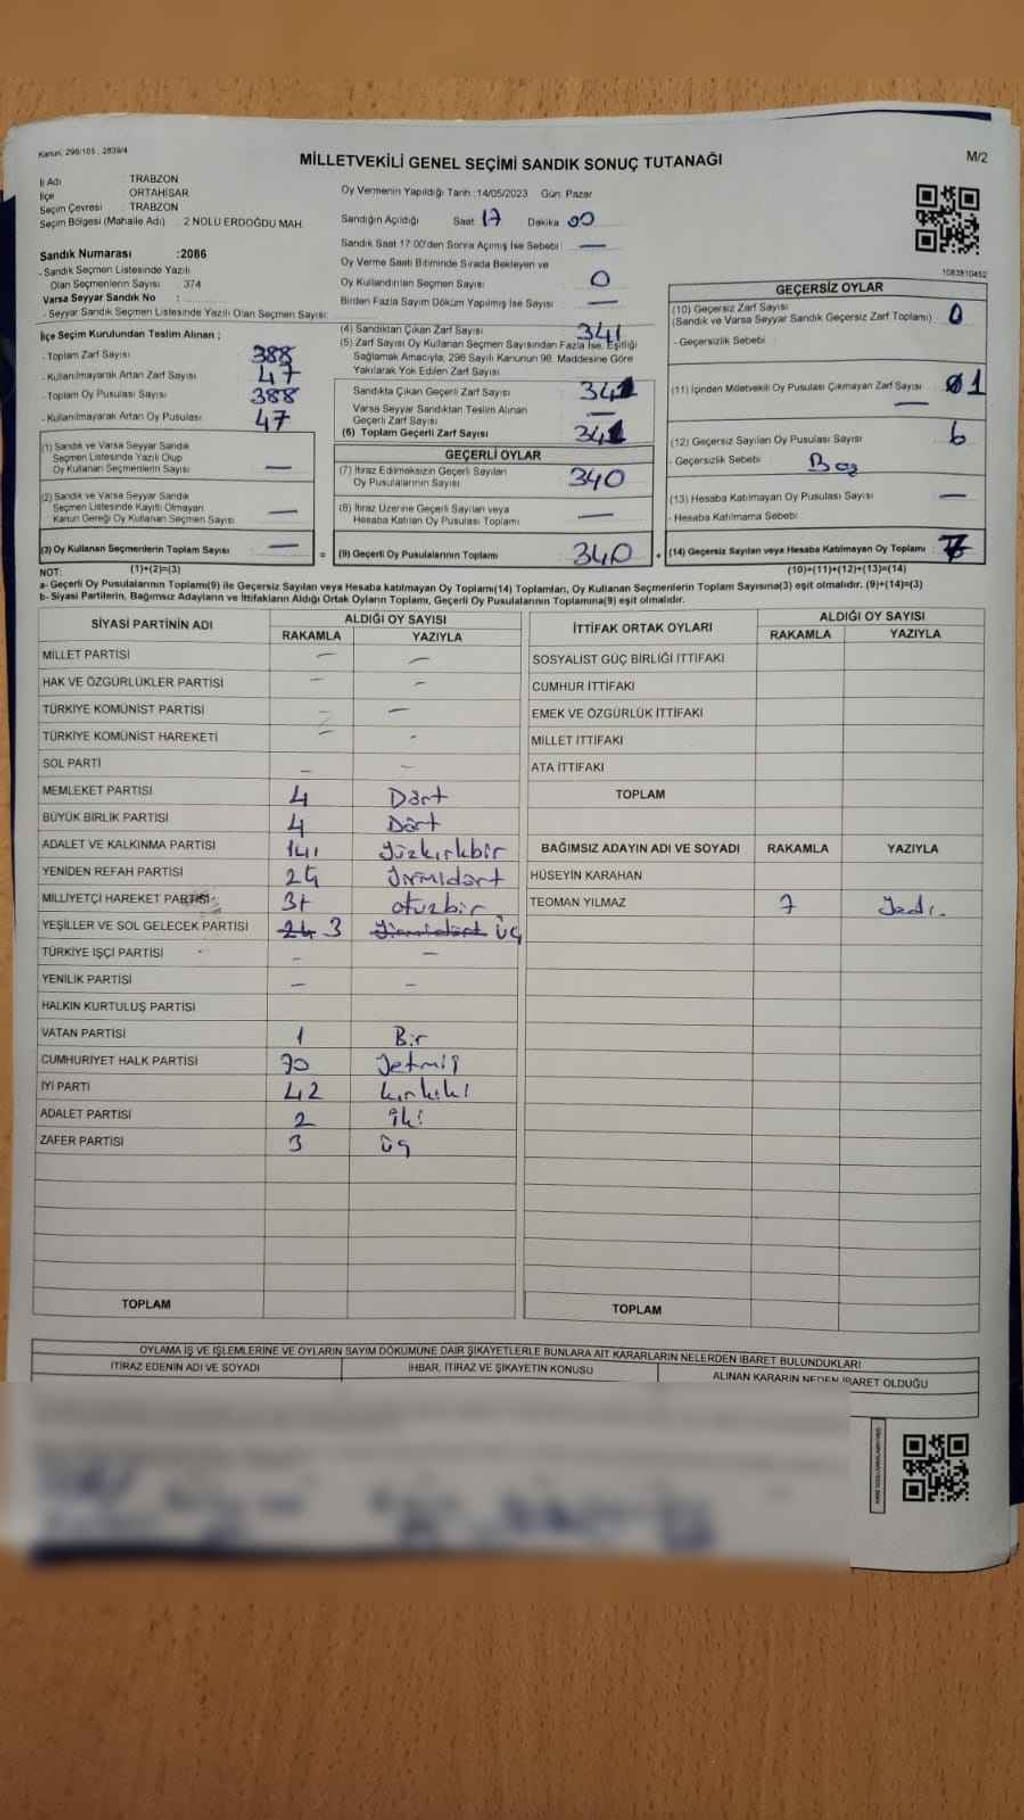 Kanun: 298/105 ; 2839/4
MİLLETVEKİLİ GENEL SEÇİMİ SANDIK SONUÇ TUTANAĞI
M/2
İl Adı TRABZON
İlçe ORTAHİSAR
Seçim Çevresi TRABZON
Seçim Bölgesi (Mahalle Adı) 2 NOLU ERDOĞDU MAH.
Oy Vermenin Yapıldığı Tarih :14/05/2023 Gün: Pazar
Sandığın Açıldığı Saat 17 Dakika 00
Sandık Saat 17.00'den Sonra Açılmış İse Sebebi : —
Oy Verme Saati Bitiminde Sırada Bekleyen ve
Oy Kullandırılan Seçmen Sayısı 0
Birden Fazla Sayım Döküm Yapılmış İse Sayısı —
Sandık Numarası :2086
- Sandık Seçmen Listesinde Yazılı
Olan Seçmenlerin Sayısı 374
Varsa Seyyar Sandık No :
- Seyyar Sandık Seçmen Listesinde Yazılı Olan Seçmen Sayısı:
İlçe Seçim Kurulundan Teslim Alınan ;
- Toplam Zarf Sayısı 388
- Kullanılmayarak Artan Zarf Sayısı 47
- Toplam Oy Pusulası Sayısı 388
- Kullanılmayarak Artan Oy Pusulası 47
(1) Sandık ve Varsa Seyyar Sandık
Seçmen Listesinde Yazılı Olup
Oy Kullanan Seçmenlerin Sayısı —
(2) Sandık ve Varsa Seyyar Sandık
Seçmen Listesinde Kayıtlı Olmayan
Kanun Gereği Oy Kullanan Seçmen Sayısı —
(3) Oy Kullanan Seçmenlerin Toplam Sayısı —
(4) Sandıktan Çıkan Zarf Sayısı 341
(5) Zarf Sayısı Oy Kullanan Seçmen Sayısından Fazla İse, Eşitliği
Sağlamak Amacıyla, 298 Sayılı Kanunun 98. Maddesine Göre
Yakılarak Yok Edilen Zarf Sayısı
Sandıkta Çıkan Geçerli Zarf Sayısı 341
Varsa Seyyar Sandıktan Teslim Alınan
Geçerli Zarf Sayısı —
(6) Toplam Geçerli Zarf Sayısı 341
GEÇERLİ OYLAR
(7) İtiraz Edilmeksizin Geçerli Sayılan
Oy Pusulalarının Sayısı 340
(8) İtiraz Üzerine Geçerli Sayılan veya
Hesaba Katılan Oy Pusulası Toplamı —
= (9) Geçerli Oy Pusulalarının Toplamı 340
1083810452
GEÇERSİZ OYLAR
(10) Geçersiz Zarf Sayısı
(Sandık ve Varsa Seyyar Sandık Geçersiz Zarf Toplamı) 0
- Geçersizlik Sebebi
(11) İçinden Milletvekili Oy Pusulası Çıkmayan Zarf Sayısı 1
—
(12) Geçersiz Sayılan Oy Pusulası Sayısı 6
- Geçersizlik Sebebi Boş
(13) Hesaba Katılmayan Oy Pusulası Sayısı —
- Hesaba Katılmama Sebebi
+ (14) Geçersiz Sayılan veya Hesaba Katılmayan Oy Toplamı 7
NOT: (1)+(2)=(3) (10)+(11)+(12)+(13)=(14)
a- Geçerli Oy Pusulalarının Toplamı(9) ile Geçersiz Sayılan veya Hesaba katılmayan Oy Toplamı(14) Toplamları, Oy Kullanan Seçmenlerin Toplam Sayısına(3) eşit olmalıdır. (9)+(14)=(3)
b- Siyasi Partilerin, Bağımsız Adayların ve İttifakların Aldığı Ortak Oyların Toplamı, Geçerli Oy Pusulalarının Toplamına(9) eşit olmalıdır.
SİYASİ PARTİNİN ADI ALDIĞI OY SAYISI
RAKAMLA YAZIYLA
MİLLET PARTİSİ — —
HAK VE ÖZGÜRLÜKLER PARTİSİ — —
TÜRKİYE KOMÜNİST PARTİSİ — —
TÜRKİYE KOMÜNİST HAREKETİ — -
SOL PARTİ — —
MEMLEKET PARTİSİ 4 Dört
BÜYÜK BİRLİK PARTİSİ 4 Dört
ADALET VE KALKINMA PARTİSİ 141 Yüzkırkbir
YENİDEN REFAH PARTİSİ 24 Yirmidört
MİLLİYETÇİ HAREKET PARTİSİ 31 otuzbir
YEŞİLLER VE SOL GELECEK PARTİSİ 24 3 Yirmidört üç
TÜRKİYE İŞÇİ PARTİSİ – —
YENİLİK PARTİSİ — —
HALKIN KURTULUŞ PARTİSİ
VATAN PARTİSİ 1 Bir
CUMHURİYET HALK PARTİSİ 70 Yetmiş
İYİ PARTİ 42 kırkiki
ADALET PARTİSİ 2 iki
ZAFER PARTİSİ 3 üç
TOPLAM
İTTİFAK ORTAK OYLARI ALDIĞI OY SAYISI
RAKAMLA YAZIYLA
SOSYALİST GÜÇ BİRLİĞİ İTTİFAKI
CUMHUR İTTİFAKI
EMEK VE ÖZGÜRLÜK İTTİFAKI
MİLLET İTTİFAKI
ATA İTTİFAKI
TOPLAM
BAĞIMSIZ ADAYIN ADI VE SOYADI RAKAMLA YAZIYLA
HÜSEYİN KARAHAN
TEOMAN YILMAZ 7 Yedi.
TOPLAM
OYLAMA İŞ VE İŞLEMLERİNE VE OYLARIN SAYIM DÖKÜMÜNE DAİR ŞİKAYETLERLE BUNLARA AİT KARARLARIN NELERDEN İBARET BULUNDUKLARI
İTİRAZ EDENİN ADI VE SOYADI İHBAR, İTİRAZ VE ŞİKAYETİN KONUSU ALINAN KARARIN NEDEN İBARET OLDUĞU